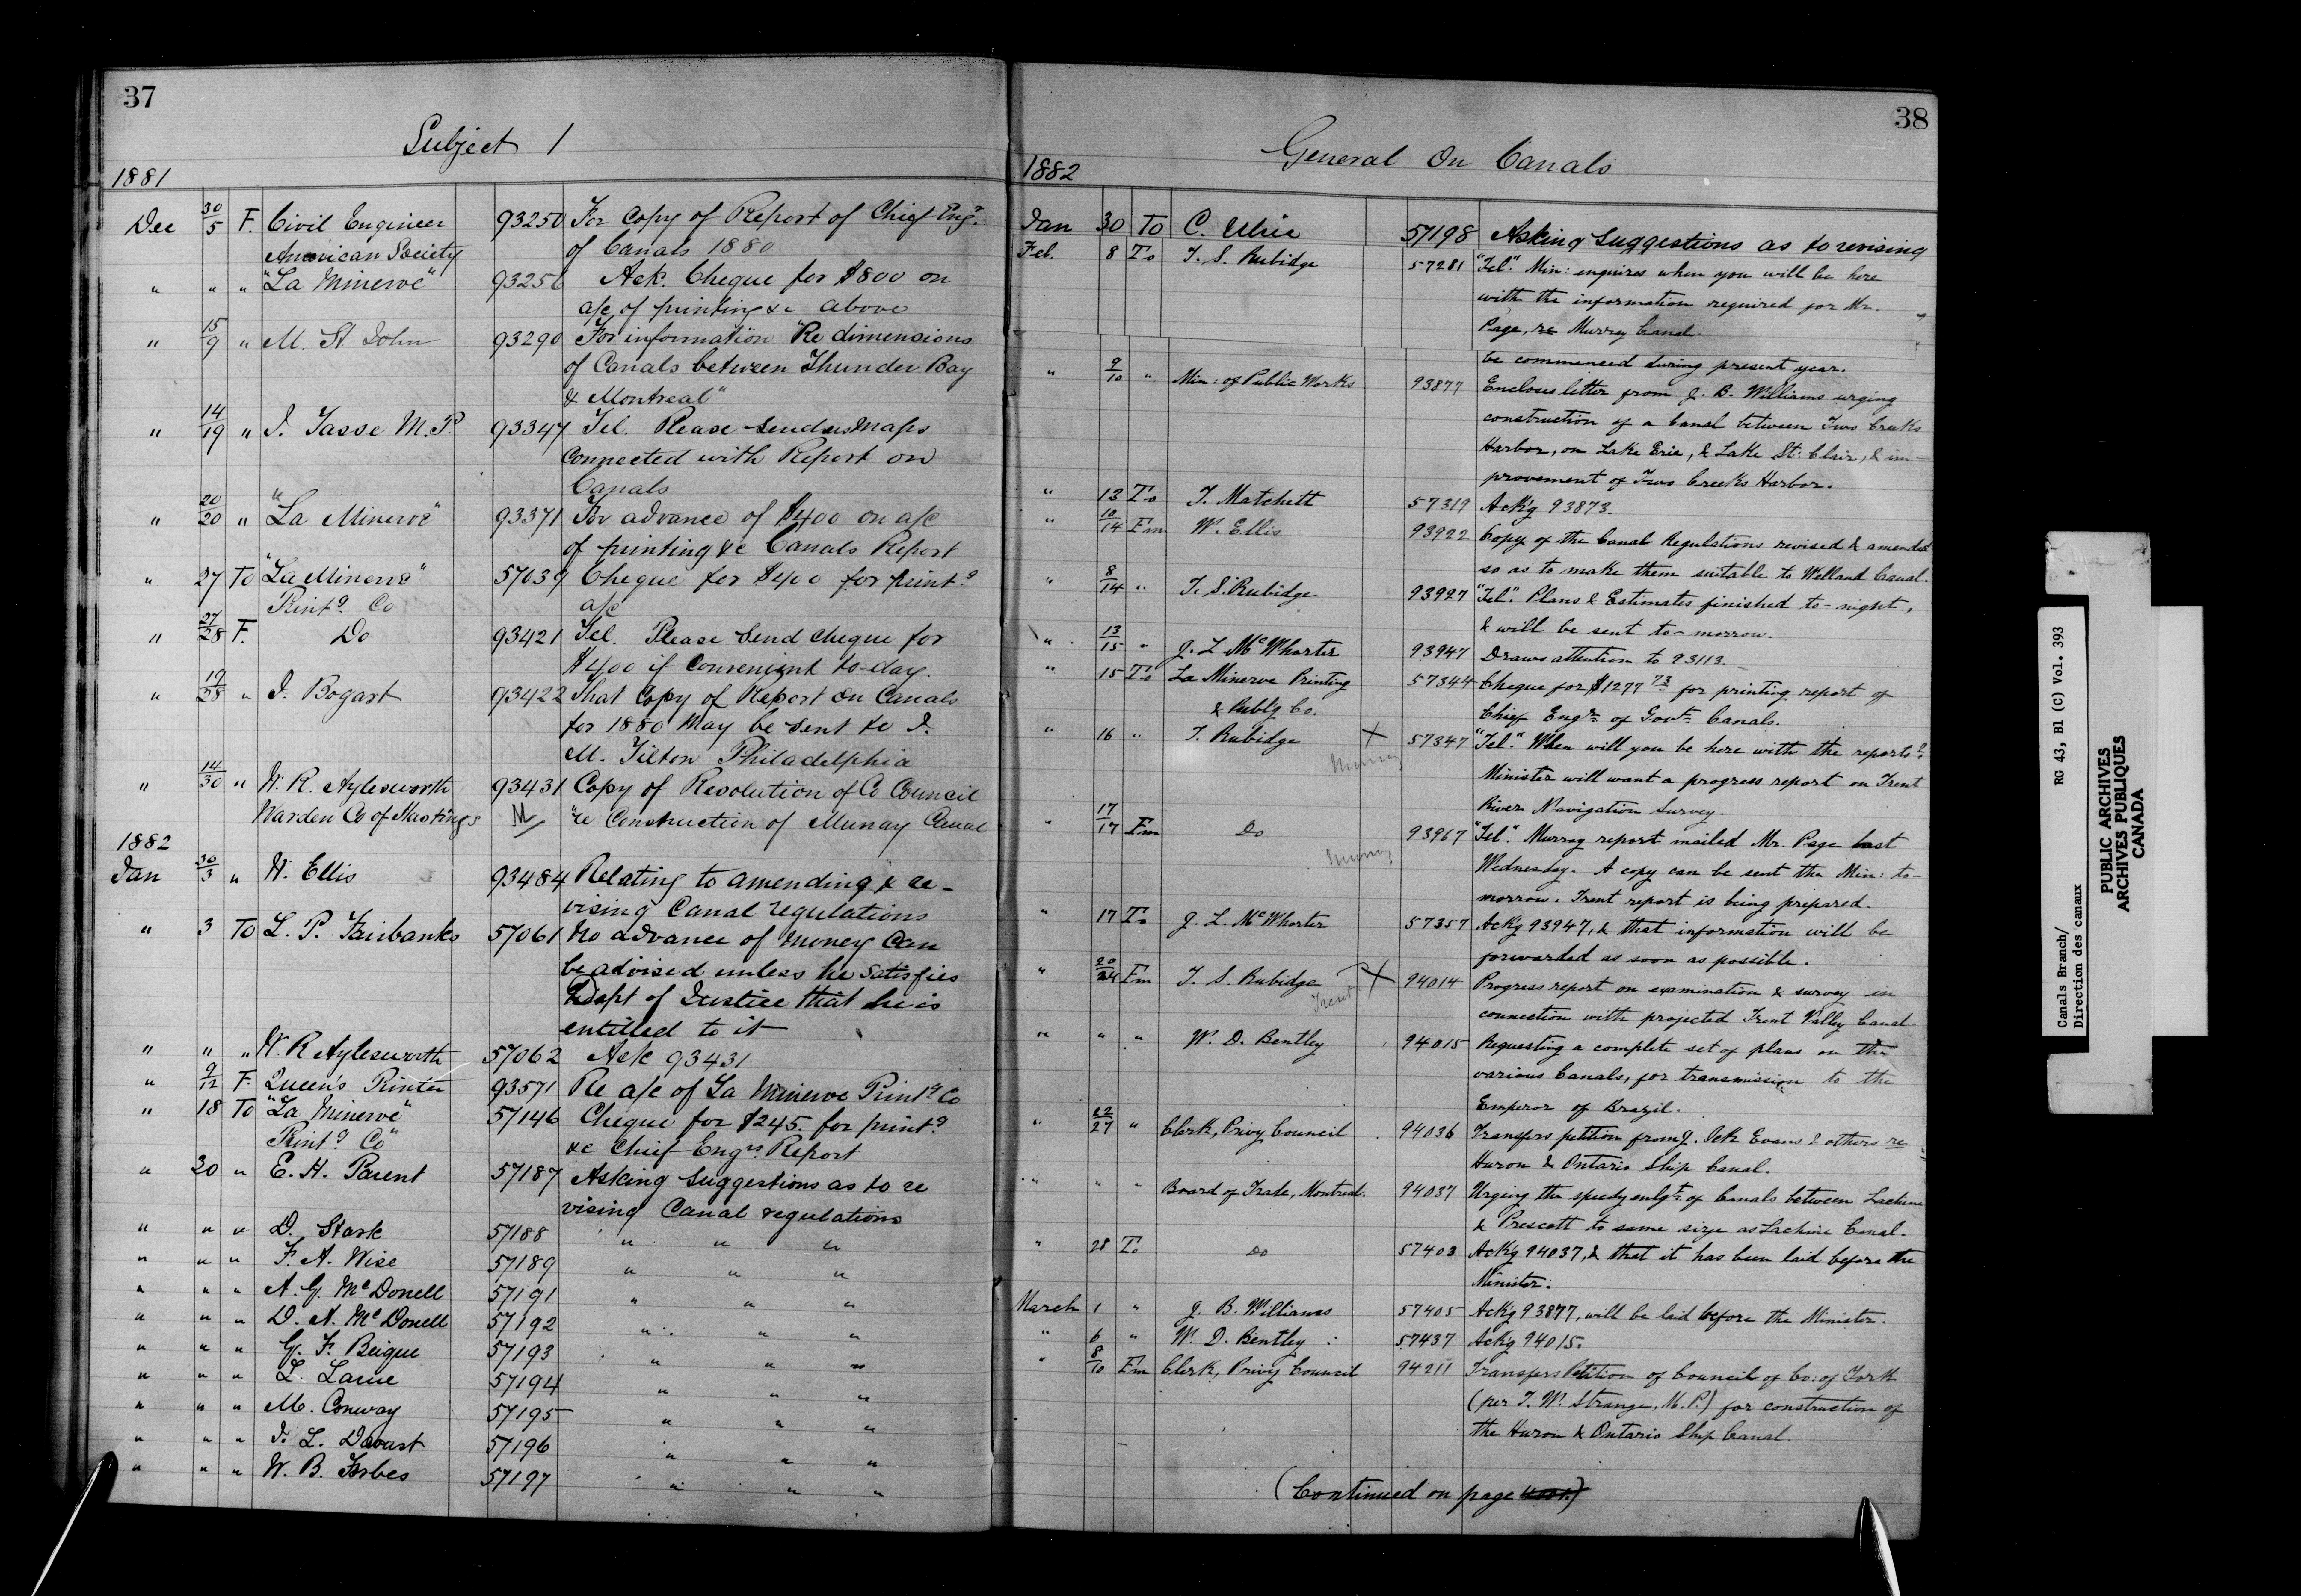 37
Subject 1
1881
Dec 30/5 F. Civil Engineer 93250 For Copy of Report of Chief Engr.
American Society of Canals 1880
" " " "La Minerve" 93256 Ack. Cheque for $800 on
a/c of printing &c above
" 15/9 " M. St. John 93290 For information "Re dimensions
of Canals between Thunder Bay
& Montreal"
" 14/19 " J. Tasse M.P. 93347 Tel. Please send us maps
connected with Report on
Canals
" 20/20 " "La Minerve" 93371 For advance of $400 on a/c
of printing &c Canals Report
" 27 To "La Minerve" 57039 Cheque for $400 for printg
Printg Co a/c
" 27/28 F. Do 93421 Tel. Please send cheque for
$400 if convenient to-day.
" 19/28 " J. Bogart 93422 That Copy of Report on Canals
for 1880 may be sent to J.
M. Tilton Philadelphia
" 14/30 " W. R. Aylesworth 93431 Copy of Resolution of Co Council
Warden Co of Hastings M "re Construction of Murray Canal
1882
Jan 30/3 " W. Ellis 93484 Relating to amending & re-
vising Canal regulations
" 3 To L. P. Fairbanks 57061 No advance of money can
be advised unless he satisfies
Dept of Justice that he is
entitled to it
" " " W. R Aylesworth 57062 Ack 93431
" 9/12 F. Queen's Printer 93571 Re a/c of La Minerve Printg Co
" 18 To "La Minerve" 57146 Cheque for $245. for printg
Printg Co" &c Chief Engrs. Report
" 30 " E. H. Parent 57187 Asking suggestions as to re
vising Canal regulations
" " " D. Stark 57188 " " "
" " " F. A. Wise 57189 " " "
" " " A. G. McDonell 57191 " " "
" " " D. A. McDonell 57192 " " "
" " " G. F. Beique 57193 " " "
" " " L. Larue 57194 " " "
" " " M. Conway 57195 " " "
" " " J. L. 57196 " " "
" " " W. B. Forbes 57197 " " "
38
General On Canals
1882
Jan 30 To C. 57198 Asking suggestions as to revising
Feb. 8 To T. S. Rubidge 57281 "Tel." Min: enquires when you will be here
with the information required for Mr.
Page, re Murray Canal.
be commenced during present year.
" 9/10 " Min: of Public Works 93877 Encloses letter from J. B. Williams urging
construction of a Canal between Two Creeks
Harbor, on Lake Erie, & Lake St. Clair, & im-
provement of Two Creeks Harbor.
" 13 To T. Matchett 57319 Ack'g 93873.
" 10/14 Fm W. Ellis 93922 Copy of the Canal Regulations revised & amended
so as to make them suitable to Welland Canal.
" 8/14 " T. S. Rubidge 93927 "Tel." Plans & Estimates finished to-night,
& will be sent to-morrow.
" 13/15 " J. L. McWhorter 93947 Draws attention to 93113.
" 15 To La Minerve Printing 57344 Cheque for $1277 73 for printing report of
& Publg Co. Chief Engr. of Govt. Canals.
" 16 " T. Rubidge X 57347 "Tel." When will you be here with the reports?
Murray Minister will want a progress report on Trent
River Navigation Survey.
" 17/17 Fm Do 93967 "Tel." Murray report mailed Mr. Page last
Murray Wednesday. A copy can be sent the Min: to-
morrow. Trent report is being prepared.
" 17 To J. L. McWhorter 57357 Ackg 93947, & that information will be
forwarded as soon as possible.
" 20/24 Fm T. S. Rubidge X 94014 Progress report on examination & survey in
Trent connection with projected Trent Valley Canal
" " " W. D. Bentley 94015 Requesting a complete set of plans on the
various Canals, for transmission to the
Emperor of Brazil.
" 22/27 " Clerk, Privy Council 94036 Transfers petition from J. Ick Evans & others re
Huron & Ontario Ship Canal.
" " " Board of Trade, Montreal. 94037 Urging the speedy enlgt. of Canals between Lachine
& Prescott to same size as Lachine Canal.
" 28 To Do 57403 Ack'g 94037, & that it has been laid before the
Minister.
March 1 " J. B. Williams 57405 Ack'g 93877, will be laid before the Minister.
" 6 " W. D. Bentley 57437 Ack'g 94015.
" 8/10 Fm Clerk, Privy Council 94211 Transfers Petition of Council of Co: of York
(per T. W. Strange, M. P.) for construction of
the Huron & Ontario Ship Canal.
(Continued on page
Canals Branch/
Direction des canaux
RG 43, B1 (C) Vol. 393
PUBLIC ARCHIVES
ARCHIVES PUBLIQUES
CANADA